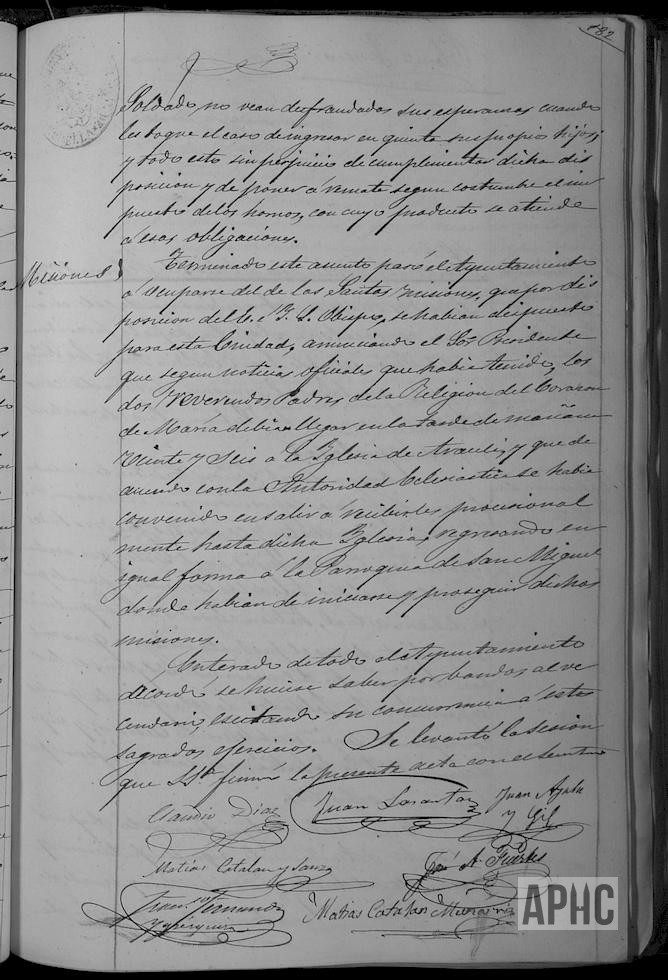 182
Soldado, no vean defraudadas sus esperanzas cuando
les toque el caso de ingresar en quinta sus propios hijos;
y todo esto sin perjuicio de cumplimentar dicha dis
posicion y de poner a remate segun costumbre el im
puesto de los hornos, con cuyo producto se atiende
a esas obligaciones.
Misiones Terminado este asunto pasó el Ayuntamiento
á ocuparse del de las Santas Misiones, que por dis
posicion del E. é Y. S. Obispo, se habian dispuesto
para esta Ciudad, anunciando el Sor. Presidente
que segun noticias oficiales que habia tenido, los
dos reverendos Padres de la Religion del Corazon
de Maria debian llegar en la tarde de mañana
veinte y seis a la Yglesia de Araceli, y que de
acuerdo con la Autoridad Eclesiastica se habia
convenido en salir á recibirles procesional
mente hasta dicha Yglesia, regresando en
igual forma á la Parroquia de San Miguel
donde habian de iniciarse y proseguir dichas
misiones.
Enterado de todo el Ayuntamiento
acordó se hiciese saber por bandos al ve
cindario, escitando su concurrencia á estos
sagrados ejercicios. Se levantó la sesion
que S.S.ª firma la presente acta con el
Claudio Diaz Juan Lasanta Juan Ayala
y Gil
Matias Catalan y Sanz José A. Fuertes
Fernandez
Matias Catalan
APHC